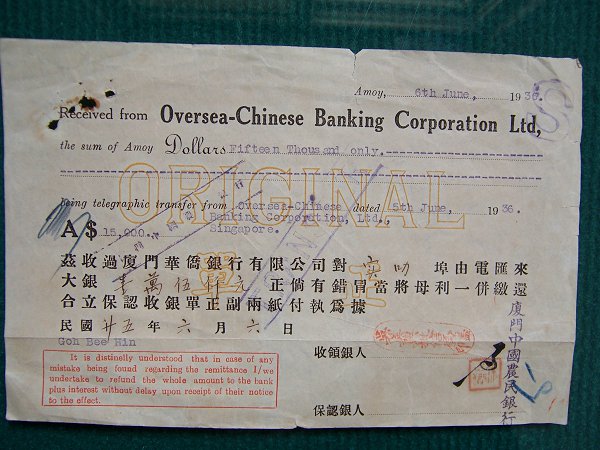 Amoy, 6th June, 1936.
Received from Oversea-Chinese Banking Corporation Ltd,
the sum of Amoy Dollars Fifteen Thousand only.
ORIGINAL
being telegraphic transfer from Oversea-Chinese dated 5th June, 1936.
Banking Corporation, Ltd.,
A$ 15,000. Singapore.
茲收過廈門華僑銀行有限公司對 实叻 埠由電匯來
大銀 壹萬伍仟元 正倘有錯冒當將母利一併繳還
合立保認收銀單正副兩紙付執爲據
民國 廿五 年 六 月 六 日
Goh Bee Hin
It is distinelly understood that in case of any
mistake being found regarding the remittance I/we
undertake to refund the whole amount to the bank
plus interest without delay upon receipt of their notice
to the effect.
收領銀人
保認銀人
廈門中國農民銀行